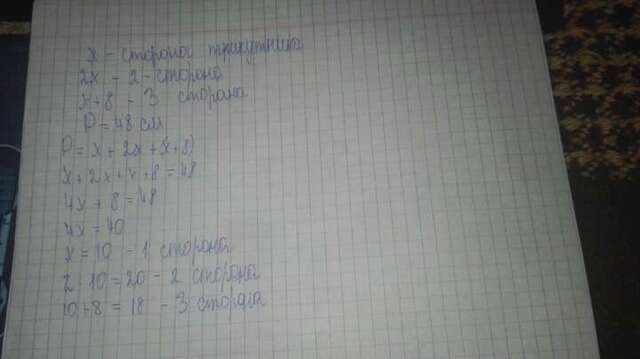 x - сторона трикутника
2x - 2 - сторона
x+8 - 3 сторона
P = 48 см
P = x + 2x + x + 8)
x + 2x + x + 8 = 48
4x + 8 = 48
4x = 40
x = 10 - 1 сторона
2 · 10 = 20 - 2 сторона
10 + 8 = 18 - 3 сторона